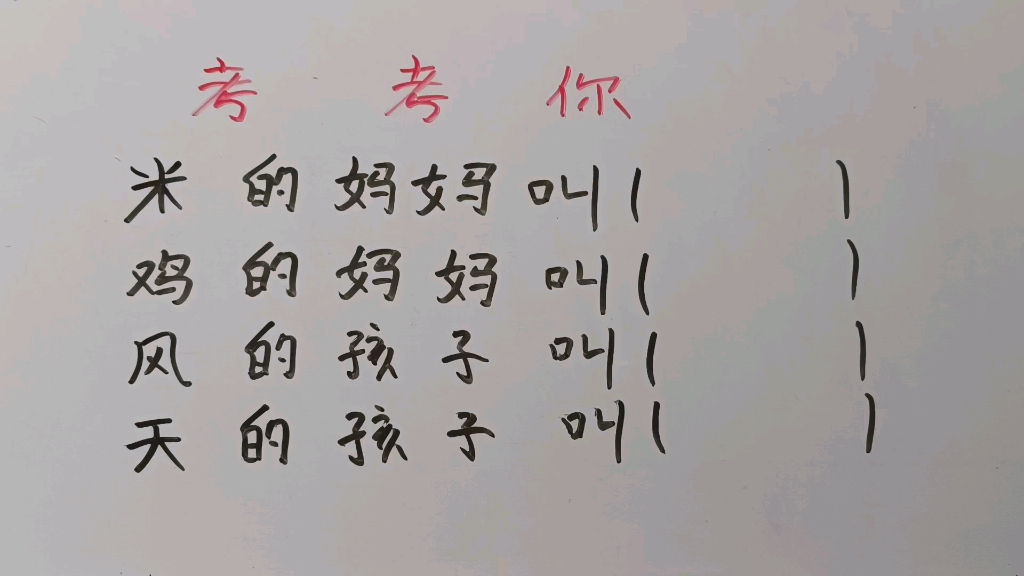 考考你
米的妈妈叫(　　)
鸡的妈妈叫(　　)
风的孩子叫(　　)
天的孩子叫(　　)